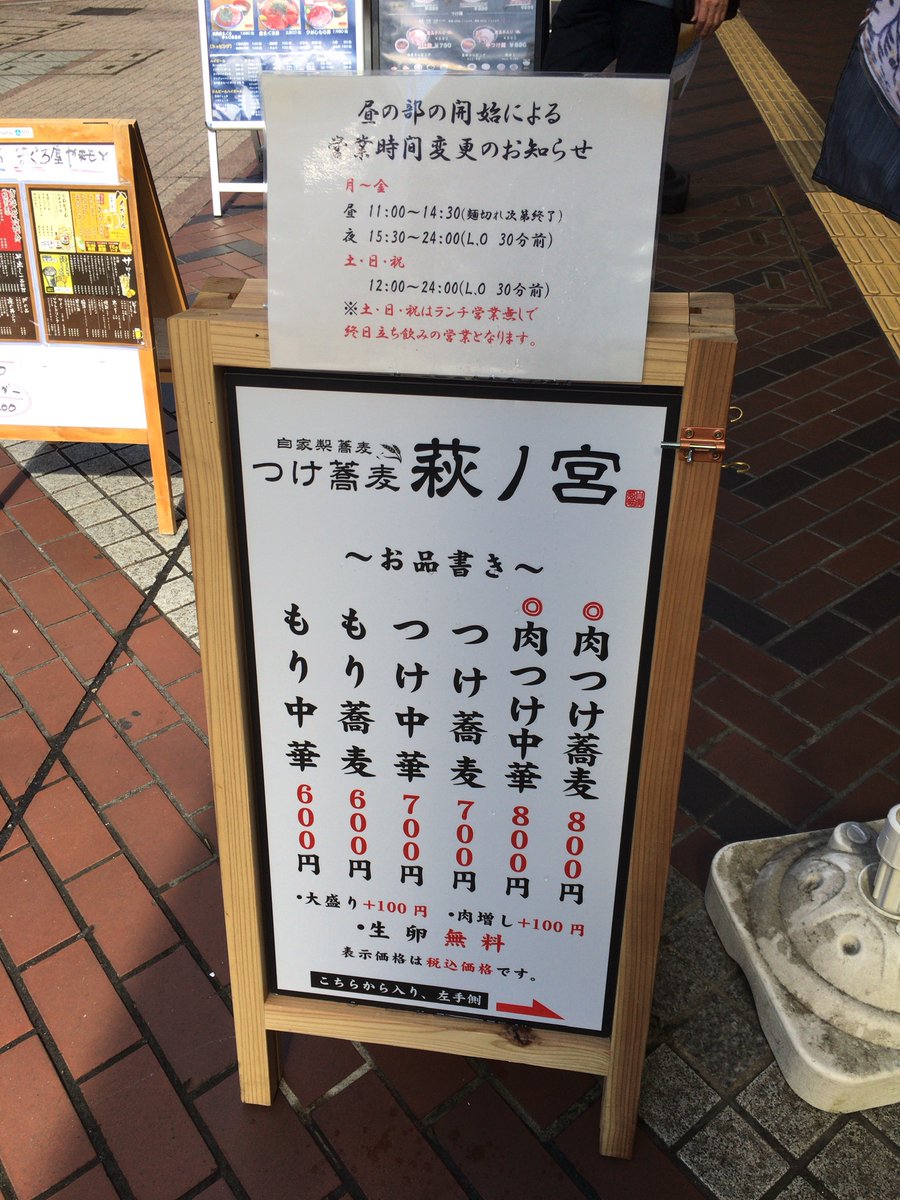 昼の部の開始による
営業時間変更のお知らせ
月～金
昼 11:00～14:30(麺切れ次第終了)
夜 15:30～24:00(L.O 30分前)
土・日・祝
12:00～24:00(L.O 30分前)
※土・日・祝はランチ営業無しで
終日立ち飲みの営業となります。
自家製蕎麦
つけ蕎麦 萩ノ宮
～お品書き～
◎肉つけ蕎麦 800円
◎肉つけ中華 800円
つけ蕎麦 700円
つけ中華 700円
もり蕎麦 600円
もり中華 600円
・大盛り+100円 ・肉増し+100円
・生卵 無料
表示価格は税込価格です。
こちらから入り、左手側